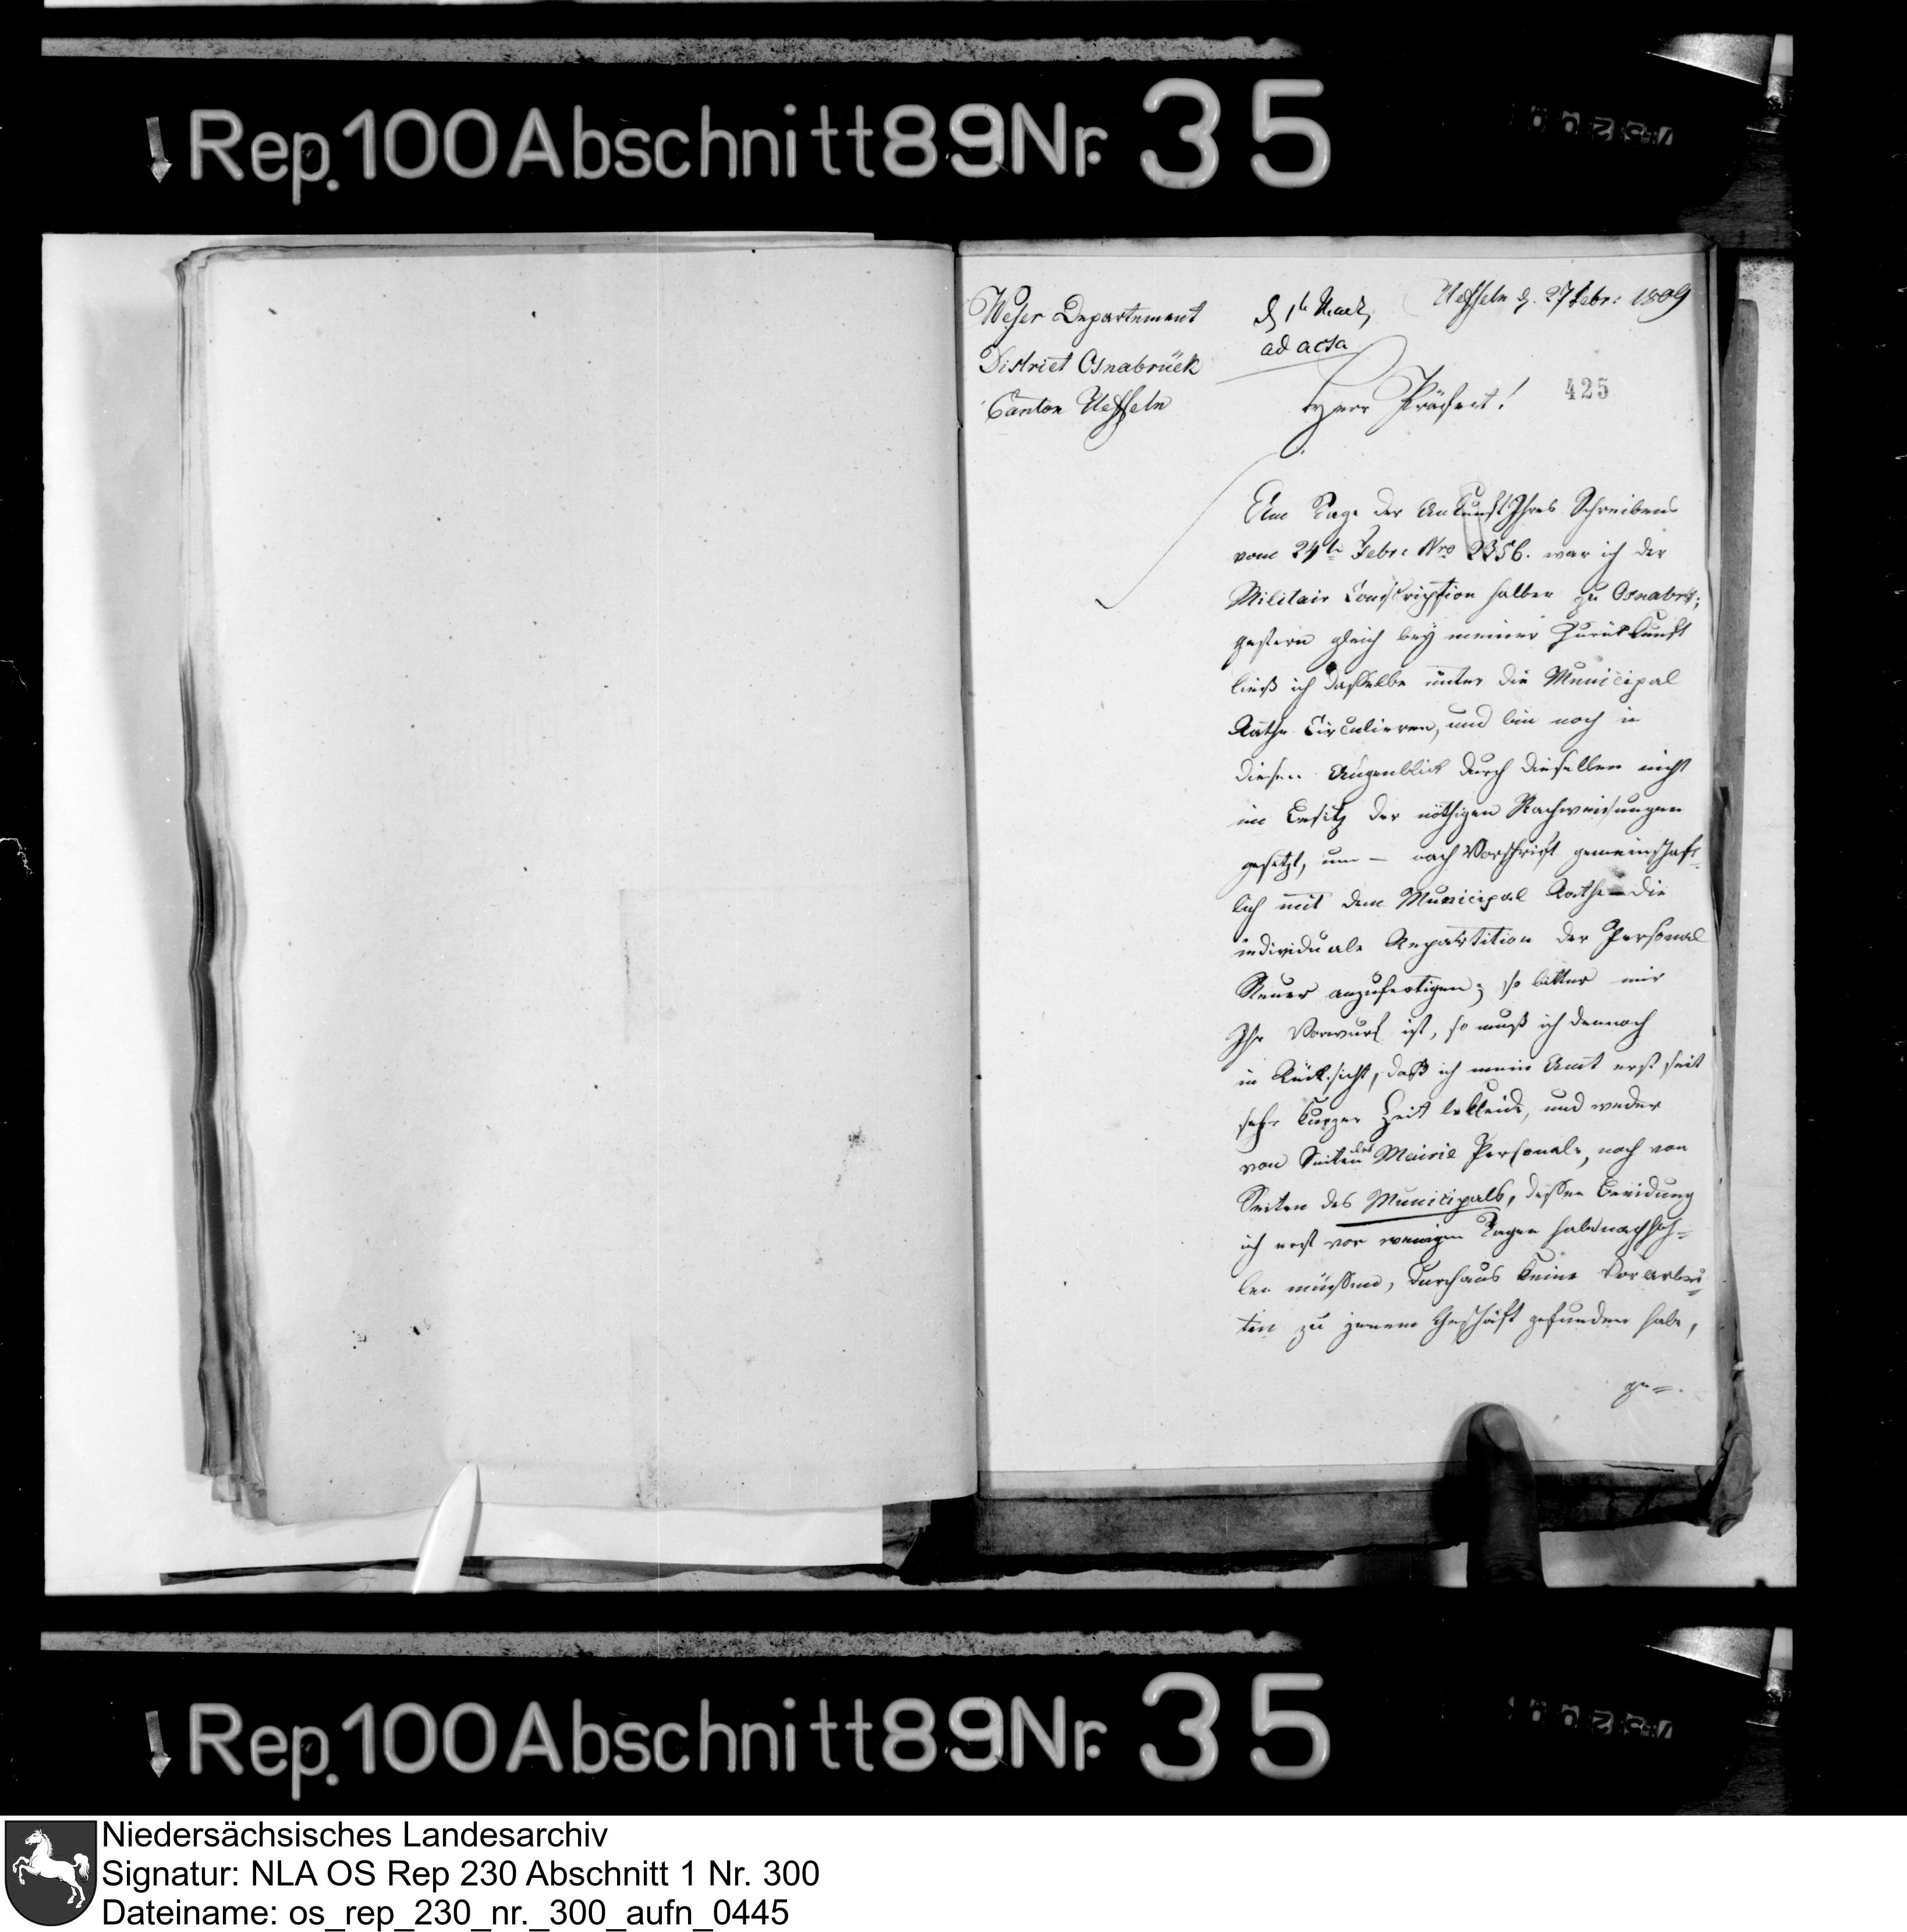 Rep. 100 Abschnitt 89 Nr. 35
Weser Departement
District Osnabrück
Canton Ueffeln
d 1t Mart,
ad acta
Ueffeln d. 27 Febr: 1809
425
Herr Präfect!
Am Tage der Ankunft Ihres Schreibens
vom 24ten Febr: Nro 2356. war ich der
Militair Conscription halber zu Osnabrk;
gestern gleich bey meiner Zurükkunft
ließ ich dasselbe unter die Municipal
Räthe Circulieren, und bin noch in
diesen Augenblick durch dieselben nicht
im Besitz der nöthigen Nachweisungen
gesetzt, um – nach Vorschrift gemeinschaft=
lich mit dem Municipal Rathe – die
individuale Repartition der Personal
Steuer anzufertigen; so bitter mir
Ihr Vorwurf ist, so muß ich dennoch
in Rücksicht, daß ich mein Amt erst seit
sehr kurzer Zeit bekleide, und weder
von Seiten des Mairie Personals, noch von
Seiten des Municipals, dessen Beeidung
ich erst vor wenigen Tagen habe nachhoh=
len müssen, durchaus keine Vorarbei=
ten zu jenem Geschäft gefunden habe,
ge=
Rep. 100 Abschnitt 89 Nr. 35
Niedersächsisches Landesarchiv
Signatur: NLA OS Rep 230 Abschnitt 1 Nr. 300
Dateiname: os_rep_230_nr._300_aufn_0445